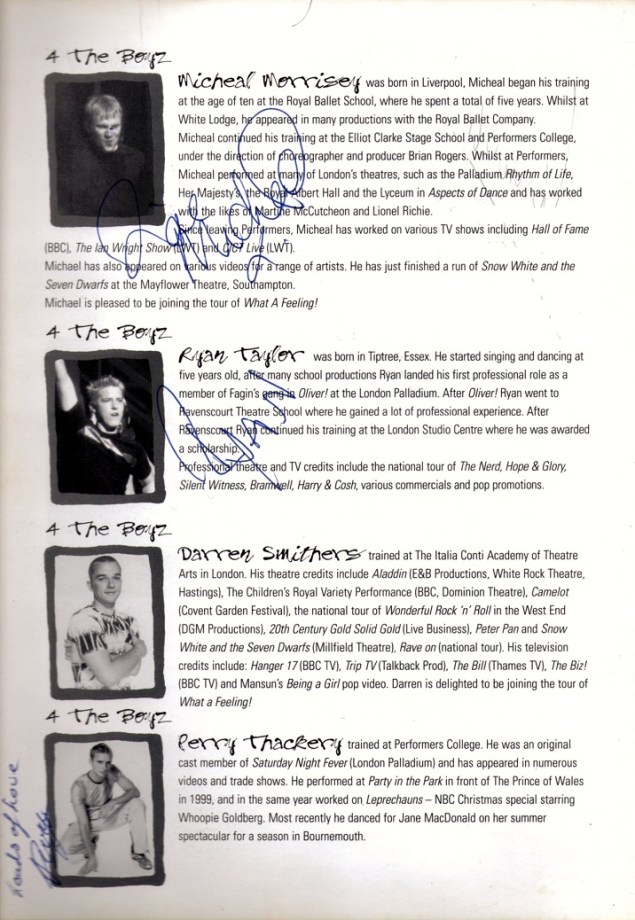 4 The Boyz
Micheal Morrisey was born in Liverpool, Micheal began his training
at the age of ten at the Royal Ballet School, where he spent a total of five years. Whilst at
White Lodge, he appeared in many productions with the Royal Ballet Company.
Micheal continued his training at the Elliot Clarke Stage School and Performers College,
under the direction of choreographer and producer Brian Rogers. Whilst at Performers,
Micheal performed at many of London's theatres, such as the Palladium Rhythm of Life,
Her Majesty's, the Royal Albert Hall and the Lyceum in Aspects of Dance and has worked
with the likes of Martine McCutcheon and Lionel Richie.
Since leaving Performers, Micheal has worked on various TV shows including Hall of Fame
(BBC), The Ian Wright Show (LWT) and CD:UK Live (LWT).
Michael has also appeared on various videos for a range of artists. He has just finished a run of Snow White and the
Seven Dwarfs at the Mayflower Theatre, Southampton.
Michael is pleased to be joining the tour of What A Feeling!
4 The Boyz
Ryan Taylor was born in Tiptree, Essex. He started singing and dancing at
five years old, after many school productions Ryan landed his first professional role as a
member of Fagin's gang in Oliver! at the London Palladium. After Oliver! Ryan went to
Ravenscourt Theatre School where he gained a lot of professional experience. After
Ravenscourt Ryan continued his training at the London Studio Centre where he was awarded
a scholarship.
Professional theatre and TV credits include the national tour of The Nerd, Hope & Glory,
Silent Witness, Bramwell, Harry & Cosh, various commercials and pop promotions.
4 The Boyz
Darren Smithers trained at The Italia Conti Academy of Theatre
Arts in London. His theatre credits include Aladdin (E&B Productions, White Rock Theatre,
Hastings), The Children's Royal Variety Performance (BBC, Dominion Theatre), Camelot
(Covent Garden Festival), the national tour of Wonderful Rock 'n' Roll in the West End
(DGM Productions), 20th Century Gold Solid Gold (Live Business), Peter Pan and Snow
White and the Seven Dwarfs (Millfield Theatre), Rave on (national tour). His television
credits include: Hanger 17 (BBC TV), Trip TV (Talkback Prod), The Bill (Thames TV), The Biz!
(BBC TV) and Mansun's Being a Girl pop video. Darren is delighted to be joining the tour of
What a Feeling!
4 The Boyz
Perry Thackery trained at Performers College. He was an original
cast member of Saturday Night Fever (London Palladium) and has appeared in numerous
videos and trade shows. He performed at Party in the Park in front of The Prince of Wales
in 1999, and in the same year worked on Leprechauns – NBC Christmas special starring
Whoopie Goldberg. Most recently he danced for Jane MacDonald on her summer
spectacular for a season in Bournemouth.
Michael
Ryan
of Love